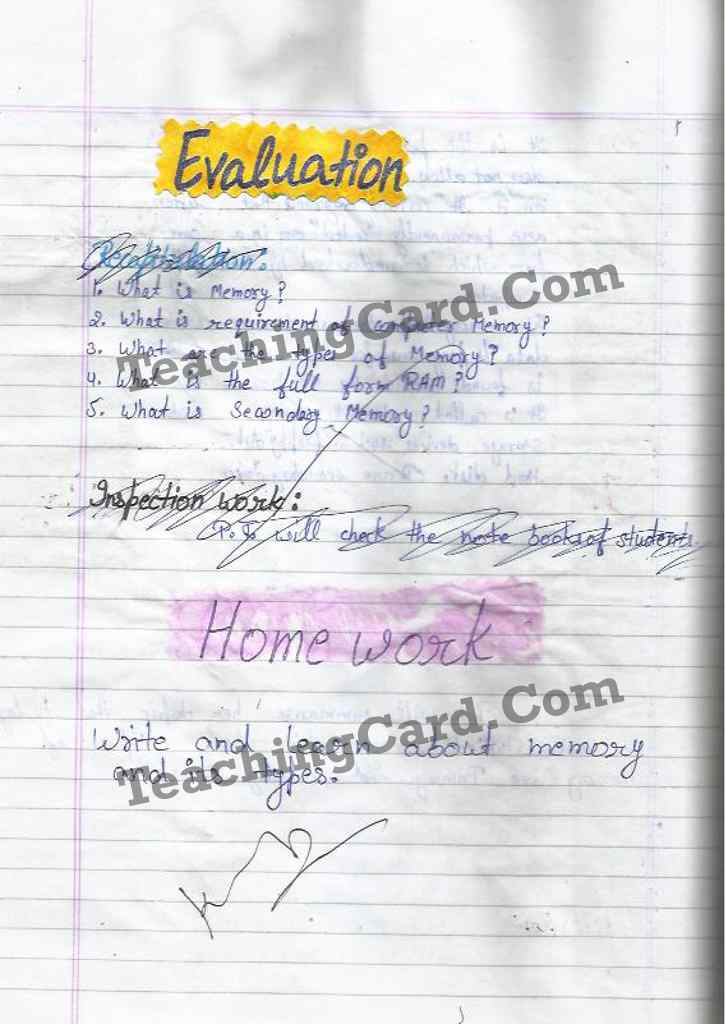 Evaluation
Recapitulation:
1. What is Memory?
2. What is requirement of computer Memory?
3. What are the types of Memory?
4. What is the full form RAM?
5. What is Secondary Memory?
TeachingCard.Com
Inspection work:
P.T will check the note books of students
Home work
Write and learn about memory
and its types.
TeachingCard.Com